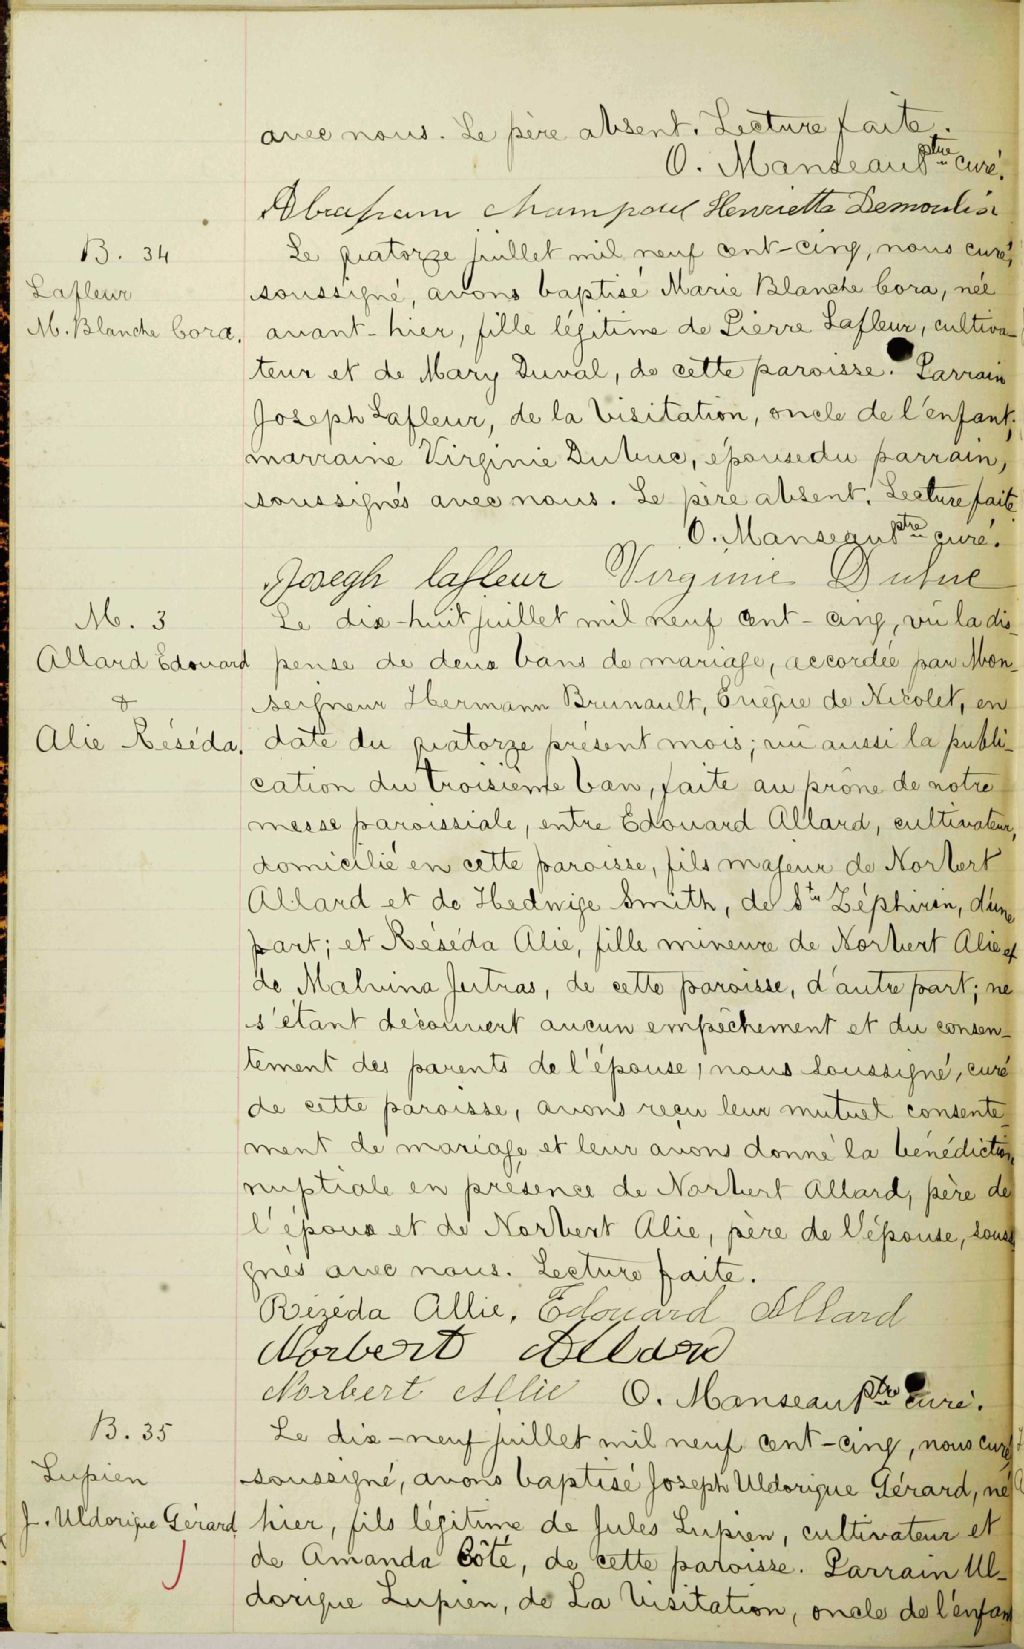 avec nous. Le père absent. Lecture faite.
O. Manseau ptre curé.
Abraham Champoux Henriette Demoulin
B. 34
Lafleur
M. Blanche Cora.
Le quatorze juillet mil neuf cent-cinq, nous curé,
soussigné, avons baptisé Marie Blanche Cora, née
avant-hier, fille légitime de Pierre Lafleur, cultiva-
teur et de Mary Duval, de cette paroisse. Parrain
Joseph Lafleur, de la Visitation, oncle de l'enfant;
marraine Virginie Dubuc, épouse du parrain,
soussignés avec nous. Le père absent. Lecture faite
O. Manseau ptre curé.
Joseph Lafleur Virginie Dubuc
M. 3
Allard Edouard
&
Alie Réséda.
Le dix-huit juillet mil neuf cent-cinq, vû la dis-
pense de deux bans de mariage, accordée par Mon-
seigneur Hermann Brunault, Evêque de Nicolet, en
date du quatorze présent mois; vû aussi la publi-
cation du troisième ban, faite au prône de notre
messe paroissiale, entre Edouard Allard, cultivateur,
domicilié en cette paroisse, fils majeur de Norbert
Allard et de Hedwige Smith, de St Zéphirin, d'une
part; et Réséda Alie, fille mineure de Norbert Alie et
de Malvina Jutras, de cette paroisse, d'autre part; ne
s'étant découvert aucun empêchement et du consen-
tement des parents de l'épouse, nous soussigné, curé
de cette paroisse, avons reçu leur mutuel consente-
ment de mariage et leur avons donné la bénédiction
nuptiale en présence de Norbert Allard, père de
l'époux et de Norbert Alie, père de l'épouse, soussi
gnés avec nous. Lecture faite.
Rézéda Allie. Edouard Allard
Norbert Allard
Norbert Allie O. Manseau ptre curé.
B. 35
Lupien
J. Uldorique Gérard.
Le dix-neuf juillet mil neuf cent-cinq, nous curé
soussigné, avons baptisé Joseph Uldorique Gérard, né
hier, fils légitime de Jules Lupien, cultivateur et
de Amanda Côté, de cette paroisse. Parrain Ul-
dorique Lupien, de La Visitation, oncle de l'enfant